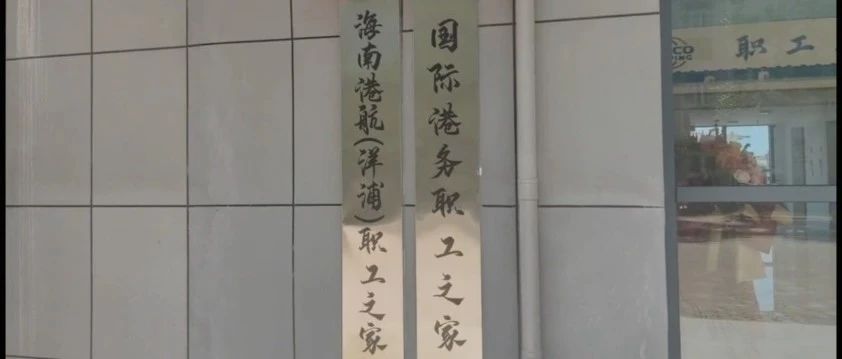 海南港航(洋浦)职工之家
国际港务职工之家
CO
PING
职工